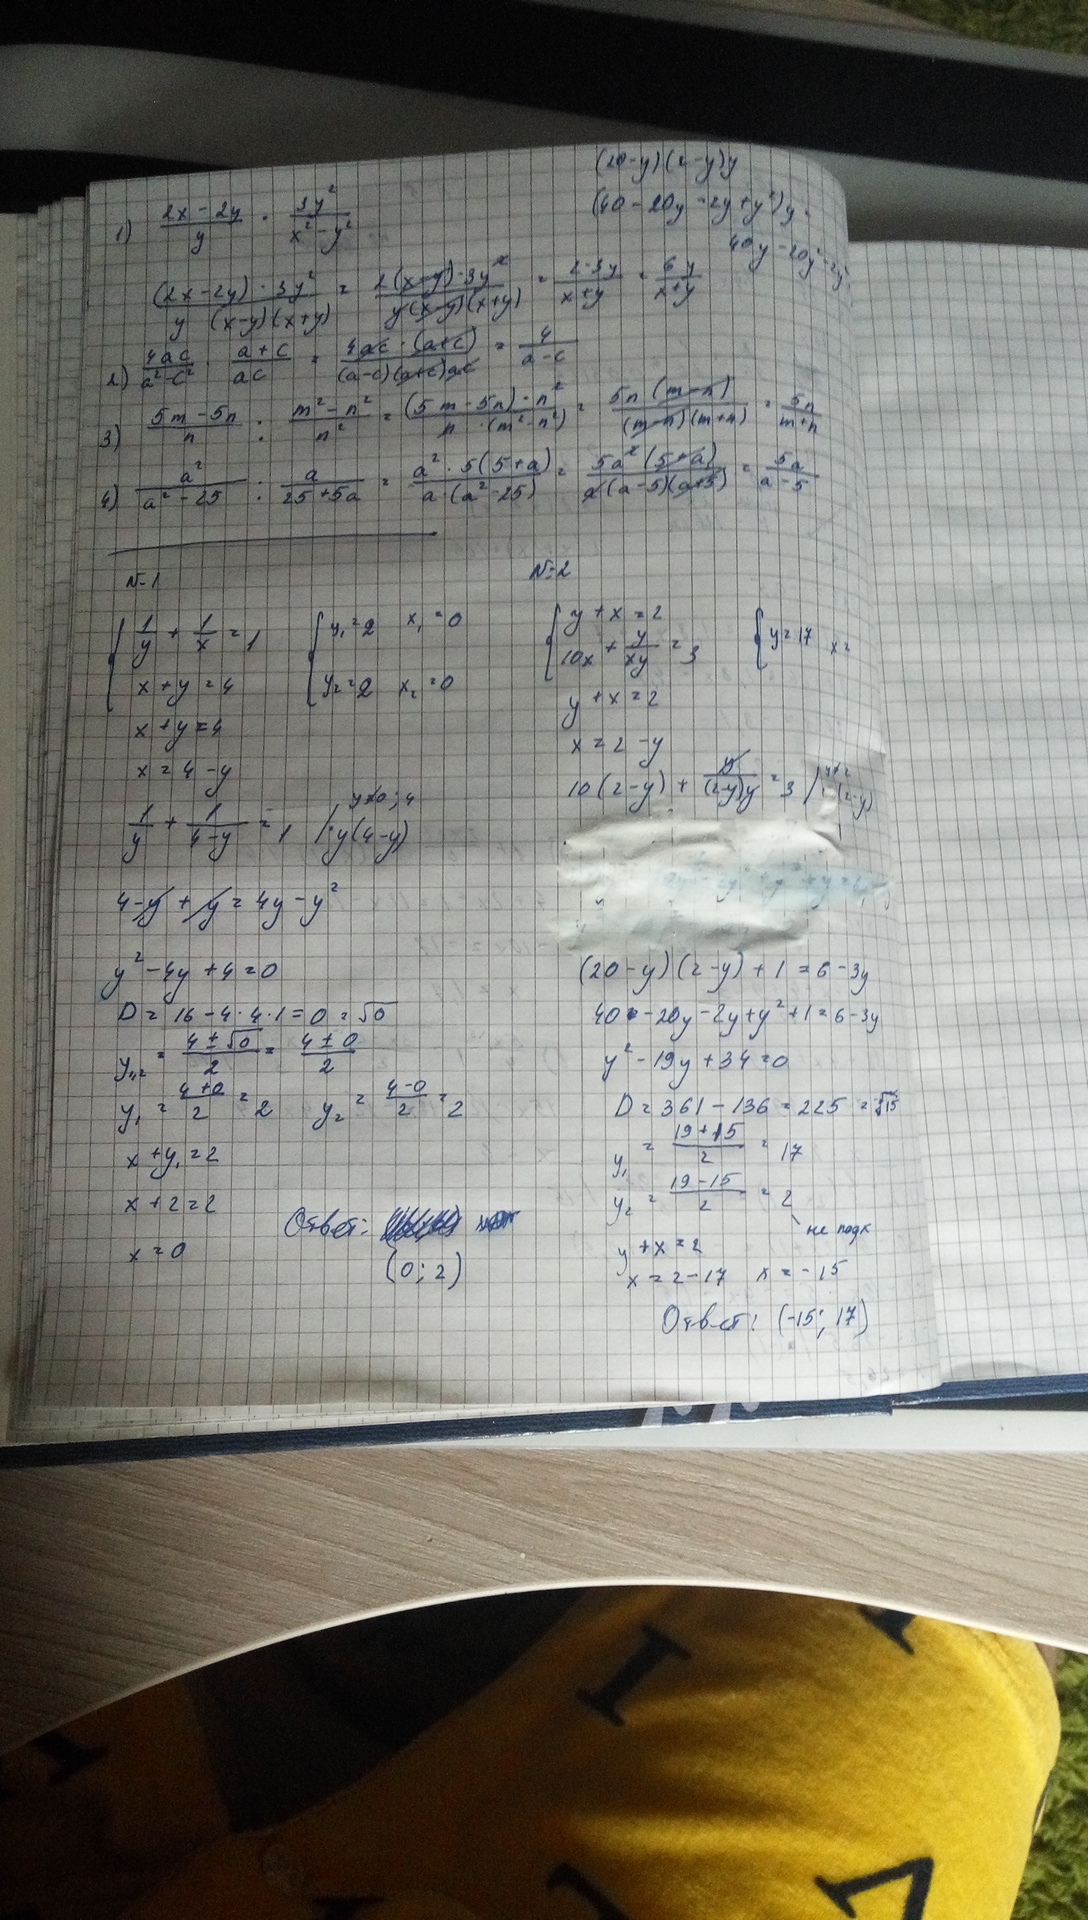 (20-y)(2-y)y
(40-20y-2y+y²)y.
40y-20y²-2y²
1) (2x-2y)/y · 3y²/(x²-y²)
((2x-2y)·3y²)/(y (x-y)(x+y)) = (2(x-y)·3y²)/(y(x-y)(x+y)) = (2·3y)/(x+y) = 6y/(x+y)
2) 4ac/(a²-c²) · (a+c)/ac = (4ac·(a+c))/((a-c)(a+c)ac) = 4/(a-c)
3) (5m-5n)/n : (m²-n²)/n² = ((5m-5n)·n²)/(n·(m²-n²)) = (5n(m-n))/((m-n)(m+n)) = 5n/(m+n)
4) a²/(a²-25) : a/(25+5a) = (a²·5(5+a))/(a·(a²-25)) = (5a²(5+a))/(a(a-5)(a+5)) = 5a/(a-5)
№1
{ 1/y + 1/x = 1
x+y=4
{ y₁=2 x₁=0
y₂=2 x₂=0
x+y=4
x=4-y
1/y + 1/(4-y) = 1 |·y(4-y)
y≠0; 4
4-y+y=4y-y²
y²-4y+4=0
D=16-4·4·1=0=√0
y₁,₂ = (4±√0)/2 = (4±0)/2
y₁ = (4+0)/2 = 2 y₂ = (4-0)/2 = 2
x+y₁=2
x+2=2
x=0
Ответ:
(0; 2)
№2
{ y+x=2
10x + y/xy = 3
{ y=17 x=
y+x=2
x=2-y
10(2-y) + y/((2-y)y) = 3
(20-y)(2-y)+1=6-3y
40-20y-2y+y²+1=6-3y
y²-19y+34=0
D=361-136=225
y₁ = (19+15)/2 = 17
y₂ = (19-15)/2 = 2
не подх
y+x=2
x=2-17 x=-15
Ответ: (-15; 17)